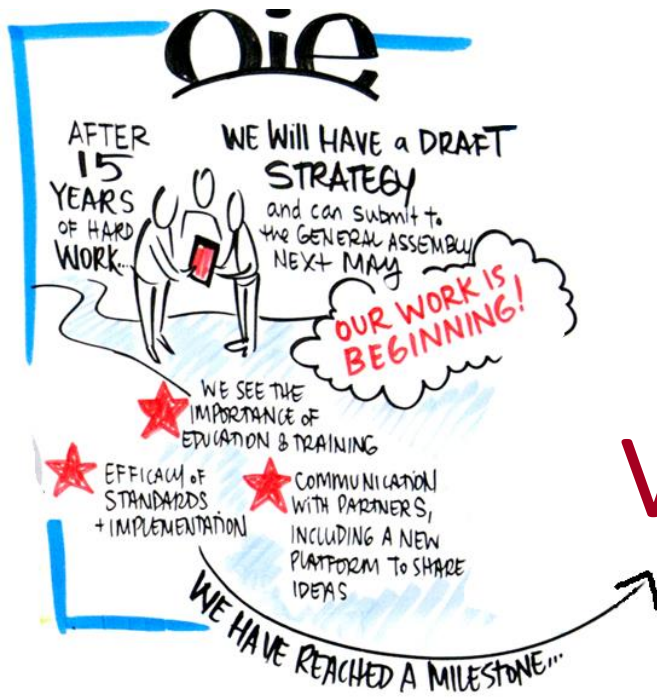 Oie
AFTER
15
YEARS
OF HARD
WORK...
WE WILL HAVE a DRAFT
STRATEGY
and can submit to
the GENERAL ASSEMBLY
NEXT MAY
OUR WORK IS
BEGINNING!
WE SEE THE
IMPORTANCE OF
EDUCATION & TRAINING
EFFICACY of
STANDARDS
+ IMPLEMENTATION
COMMUNICATION
WITH PARTNERS,
INCLUDING A NEW
PLATFORM TO SHARE
IDEAS
WE HAVE REACHED A MILESTONE...